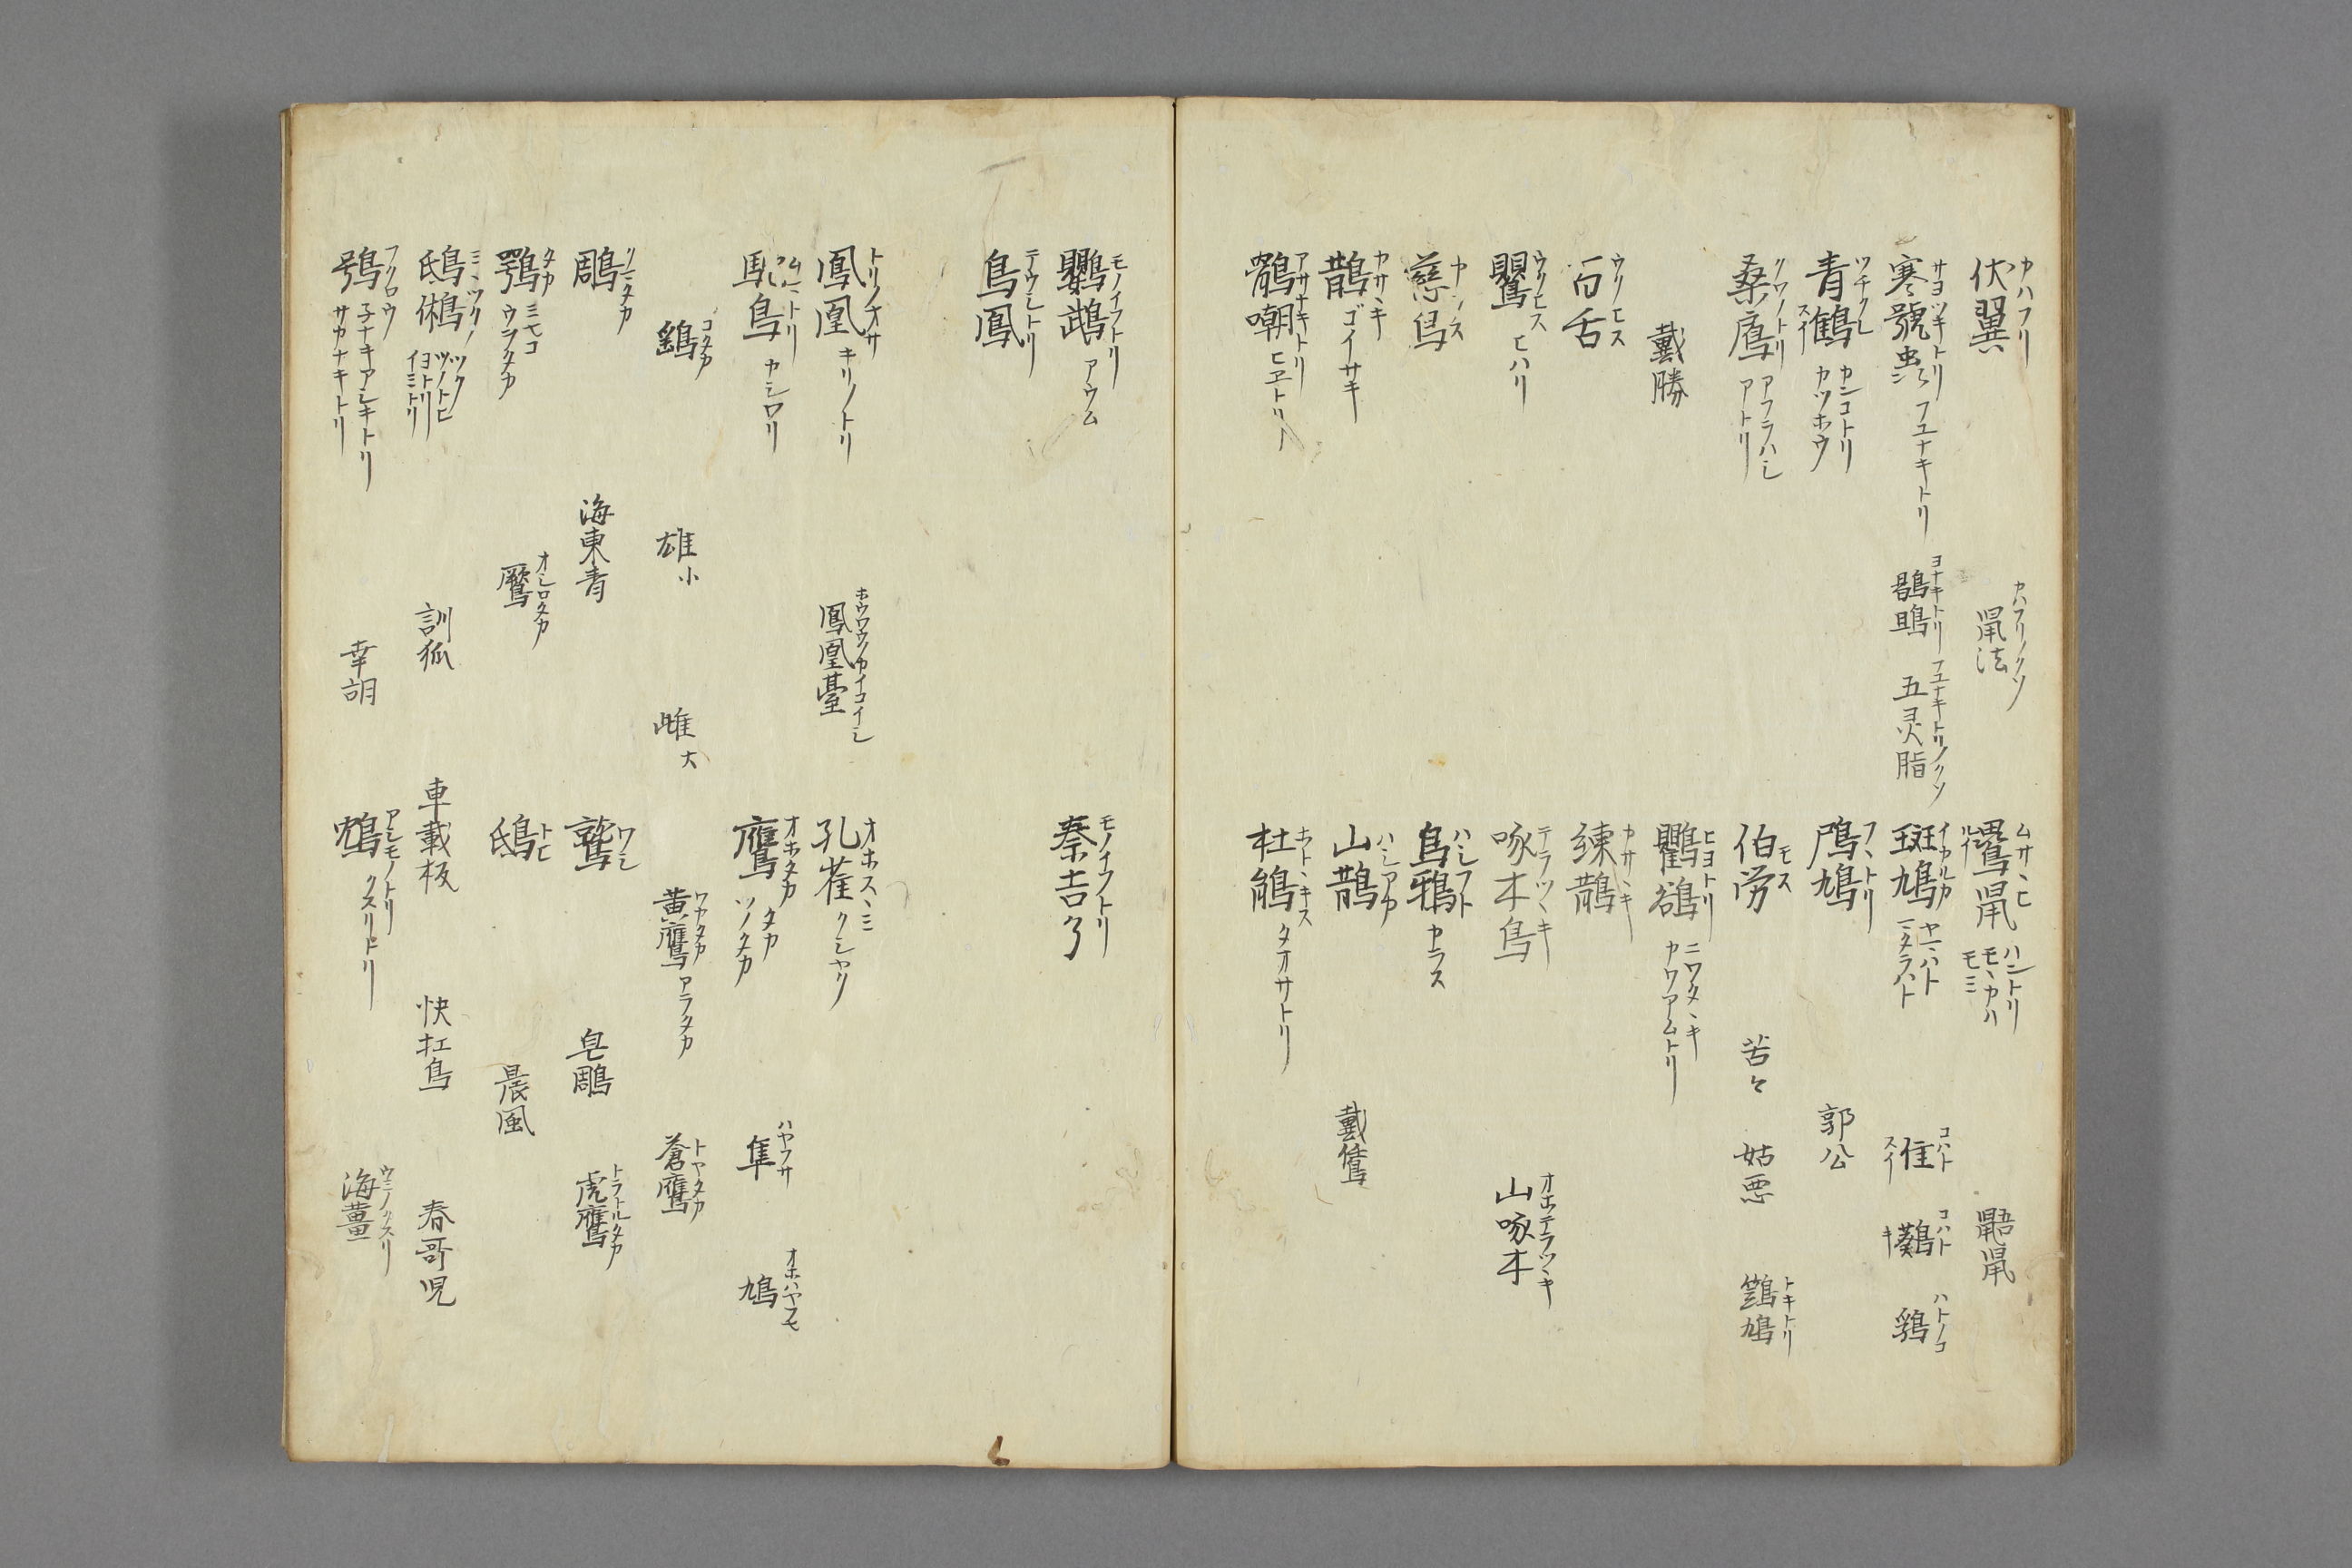 伏翼 カハフリ
鼠法 カハフリノクソ
鸓鼠 ムサヽヒ ルイ ハントリ モヽカハ モミ
鼯鼠
寒號虫 サヨツキトリ フユナキトリ
鶡鴠 ヨナキトリ
五灵脂 フユナキトリノクソ
斑鳩 イカルカ ヤマハト マタラハト
隹 コハト スイ
コハト キ
ハトノコ
青鶴 ツチクレ スイ カンコトリ カツホウ
鳲鳩 フヽトリ
郭公
桑鳸 クワノトリ アフラハシ アトリ
伯労 モス
苦々
姑悪
鳩 トキトリ
戴勝
鸜鵒 ヒヨトリ ニワタヽキ カワアムトリ
百舌 ウクヒス
練鵲 カサヽキ
鸎 ウクヒス ヒハリ
啄木鳥 テラツヽキ
山啄木 オホテラツヽキ
慈烏 カラス
烏鴉 ハシフト カラス
鵲 カサヽキ ゴイサキ
山鵲 ハシアカ
戴鵀
鶻嘲 アサナキトリ ヒヱトリ
杜鵑 ホトヽキス タオサトリ
鸚䳇 モノイフトリ アウム
秦吉了 モノイフトリ
鳥鳳 テウシトリ
鳳凰 トリノオサ キリノトリ
鳳凰臺 ホウワウノ イコイシ
孔雀 オホスヽミ クシャク
鳥 カシロリ
鷹 オホタカ タカ ソノタカ
隼 ハヤフサ
鳩
鷂 コタカ
雄 小
雌 大
黄鷹 ワカタカ アラタカ
蒼鷹 トヤタカ
鵰 クマタカ
海東青
鷲 ワシ
皂鵰
虎鷹 トラトルタカ
鶚 タカ ミサコ ウヲタカ
鷢 オシロタカ
鴟 トヒ
晨風
鴟鵂 ミヽツク ツク ツノトヒ ヨトリ イミトリ
訓狐
車載板
快扛鳥
春哥児
鴞 フクロウ 子ナキアシキトリ サカナキトリ
幸胡
鴆 アシモノトリ クスリトリ
海薑 ウミノクスリ